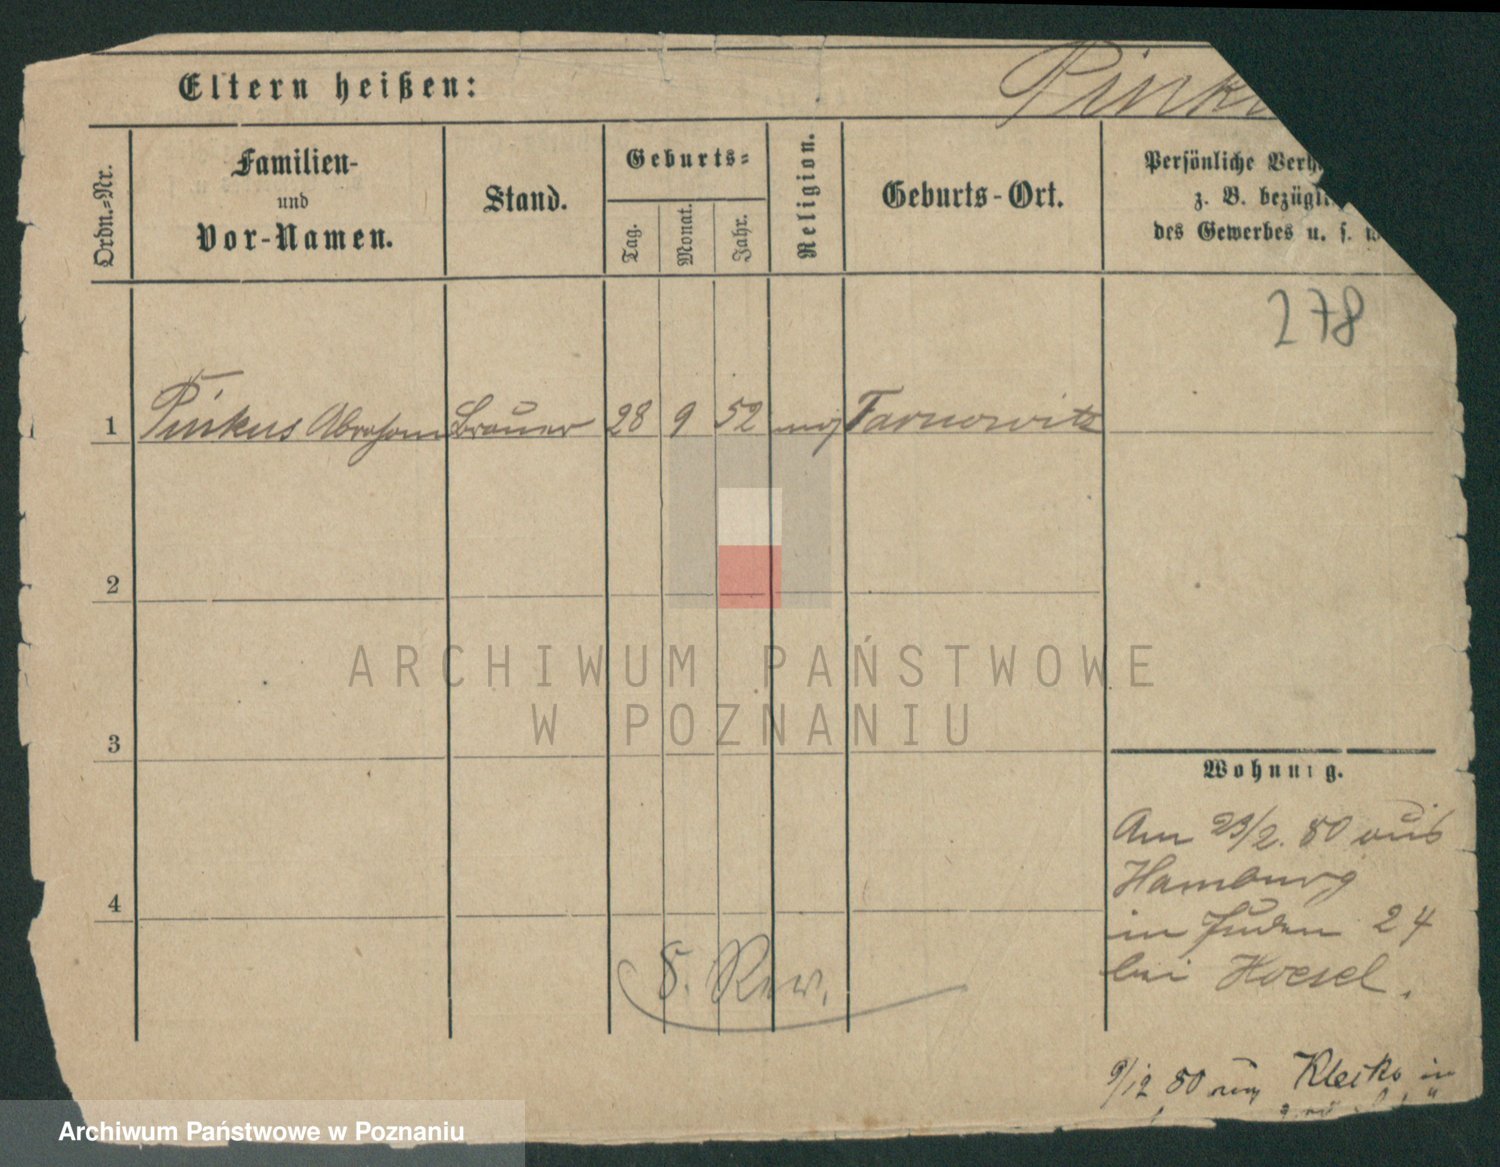 Eltern heißen:
Pinku
Ordn.-Nr.
Familien-
und
Vor-Namen.
Stand.
Geburts-
Tag.
Monat.
Jahr.
Religion.
Geburts-Ort.
Persönliche Verh
z. B. bezügli
des Gewerbes u. s. w
278
1 Pinkus Abraham Brauer 28 9 52 mos Tarnowitz
2
3
4
Wohnung.
Am 23/2. 80 aus
Hamburg
in Juden 24
bei Hoesel.
S. Rev.
9/12 80 nach Kletko in
ARCHIWUM PAŃSTWOWE
W POZNANIU
Archiwum Państwowe w Poznaniu